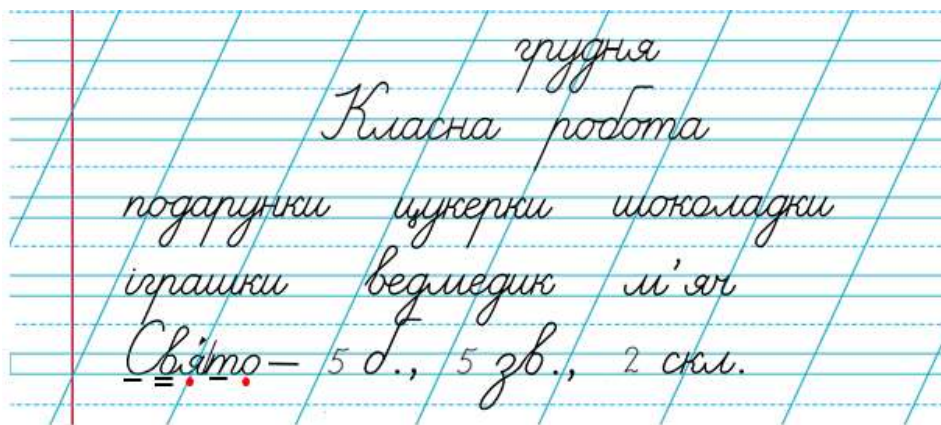 грудня
Класна робота
подарунки цукерки шоколадки
іграшки ведмедик м’яч
Свя́/то – 5 б., 5 зв., 2 скл.